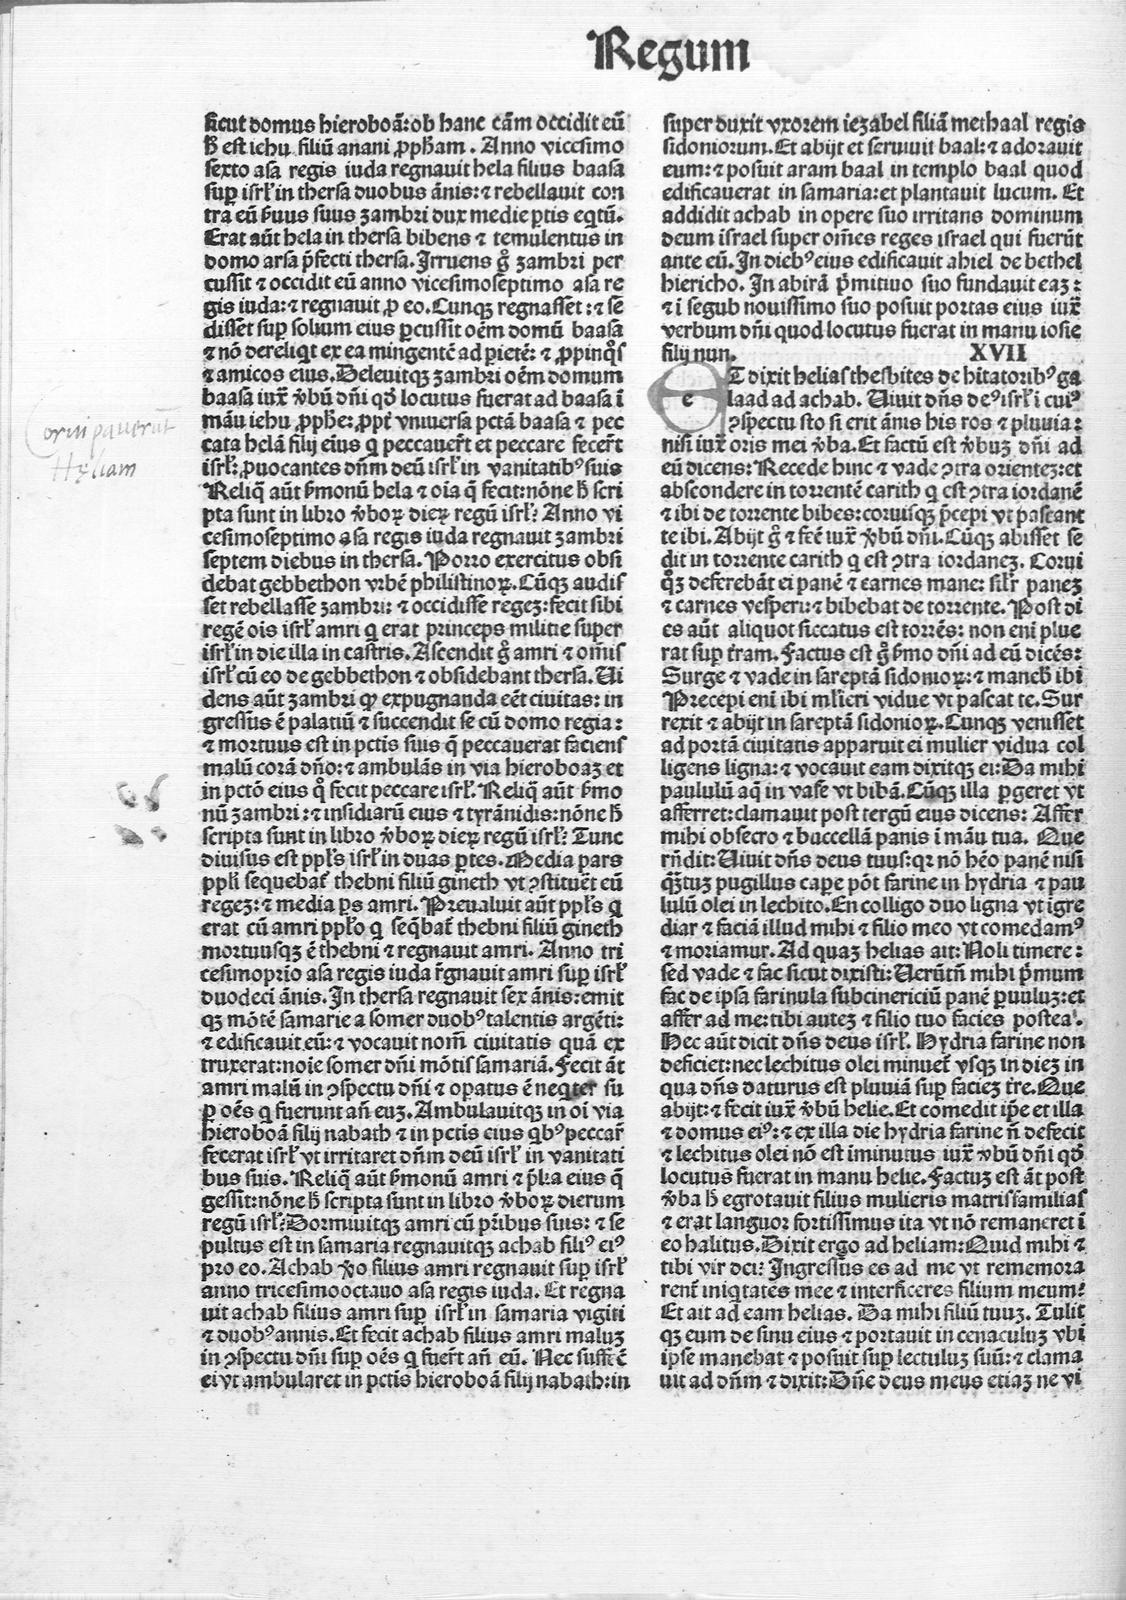 Regum
sicut domus hieroboã: ob hanc cãm occidit eũ
h̃ est iehu filiũ anani ꝓpħam. Anno vicesimo
sexto asa regis iuda regnauit hela filius baasa
suꝑ isrł in thersa duobus ãnis: ⁊ rebellauit con
tra eũ ẜuus suus zambri dux medie ꝑtis eq̃tũ.
Erat aũt hela in thersa bibens ⁊ temulentus in
domo arsa p̃fecti thersa. Irruens gͦ zambri per
cussit ⁊ occidit eũ anno vicesimoseptimo asa re
gis iuda: ⁊ regnauit ꝓ eo. Cunqꝫ regnasset: ⁊ se
disset suꝑ solium eius ꝑcussit oẽm domũ baasa
⁊ nõ dereliqt ex ea mingentẽ ad pietẽ: ⁊ ꝓpinqͦs
⁊ amicos eius. Deleuitqꝫ zambri oẽm domum
baasa iux̃ v̾bũ dñi qð locutus fuerat ad baasa ĩ
mãu iehu ꝓpħe: ꝓpt̾ vniuersa pctã baasa ⁊ pec
cata helã filij eius q̃ peccauer̃t et peccare fecer̃t
isrł: ꝓuocantes dñm deũ isrł in vanitatibꝰ suis
Reliq̃ aũt ẜmonũ hela ⁊ oĩa q̃ fecit: nõne h̃ scri
pta sunt in libro v̾boꝝ dieꝝ regũ isrł? Anno vi
cesimoseptimo asa regis iuda regnauit zambri
septem diebus in thersa. Porro exercitus obsi
debat gebbethon vrbẽ philistinoꝝ. Cũqꝫ audis
set rebellasse zambri: ⁊ occidisse regeꝫ: fecit sibi
regẽ ois isrł amri q̃ erat princeps militie super
isrł in die illa in castris. Ascendit gͦ amri ⁊ om̃is
isrł cũ eo de gebbethon ⁊ obsidebant thersa. Ui
dens aũt zambri ꝙ expugnanda eẽt ciuitas: in
gressus ẽ palatiũ ⁊ succendit se cũ domo regia:
⁊ mortuus est in pctis suis q̃ peccauerat faciens
malũ corã dño: ⁊ ambulãs in via hieroboaꝫ et
in pctõ eius qͦ fecit peccare isrł. Reliq̃ aũt ẜmo
nũ zambri: ⁊ insidiarũ eius ⁊ tyrãnidis: nõne h̃
scripta sunt in libro v̾boꝝ dieꝝ regũ isrł? Tunc
diuisus est ppłs isrł in duas ꝑtes. Media pars
ppli sequebat̃ thebni filiũ gineth vt ꝯstituẽt eũ
regeꝫ: ⁊ media ꝑs amri. Preualuit aũt ppłs q̃
erat cũ amri ppło q̃ seq̃bat̃ thebni filiũ gineth
mortuusqꝫ ẽ thebni ⁊ regnauit amri. Anno tri
cesimoprĩo asa regis iuda r̃gnauit amri suꝑ isrł
duodeci ãnis. In thersa regnauit sex ãnis: emit
qꝫ mõtẽ samarie a somer duobꝰ talentis argẽti:
⁊ edificauit eũ: ⁊ vocauit nom̃ ciuitatis quã ex
truxerat: noĩe somer dñi mõtis samariã. Fecit ãt
amri malũ in ꝯspectu dñi ⁊ oꝑatus ẽ neqter su
ꝑ oẽs q̃ fuerunt añ euꝫ. Ambulauitqꝫ in oĩ via
hieroboã filij nabath ⁊ in pctis eius qbꝰ peccar̃
fecerat isrł vt irritaret dñm deũ isrł in vanitati
bus suis. Reliq̃ aũt ẜmonũ amri ⁊ p̃lia eius q̃
gessit: nõne h̃ scripta sunt in libro v̾boꝝ dierum
regũ isrł? Dormiuitqꝫ amri cũ pr̃ibus suis: ⁊ se
pultus est in samaria regnauitqꝫ achab filiꝰ eiꝰ
pro eo. Achab v̾o filius amri regnauit suꝑ isrł
anno tricesimooctauo asa regis iuda. Et regna
uit achab filius amri suꝑ isrł in samaria vigiti
⁊ duobꝰ annis. Et fecit achab filius amri maluꝫ
in ꝯspectu dñi suꝑ oẽs q̃ fuer̃t añ eũ. Nec suffẽ ẽ
ei vt ambularet in pctis hieroboã filij nabath: in
super duxit vxorem iezabel filiã methaal regis
sidoniorum. Et abijt et seruiuit baal: ⁊ adorauit
eum: ⁊ posuit aram baal in templo baal quod
edificauerat in samaria: et plantauit lucum. Et
addidit achab in opere suo irritans dominum
deum israel super om̃es reges israel qui fuerũt
ante eũ. In diebꝰ eius edificauit ahiel de bethel
hiericho. In abirã p̃mitiuo suo fundauit eaꝫ:
⁊ ĩ segub nouissimo suo posuit portas eius iux̃
verbum dñi quod locutus fuerat in manu iosie
filij nun. XVII
ET dixit helias thesbites de hitatoribꝰ ga
laad ad achab. Uiuit dñs deꝰ isrł ĩ cuiꝰ
ꝯspectu sto si erit ãnis his ros ⁊ pluuia:
nisi iux̃ oris mei v̾ba. Et factũ est v̾buꝫ dñi ad
eũ dicens: Recede hinc ⁊ vade ꝯtra orienteꝫ: et
abscondere in torrentẽ carith q̃ est ꝯtra iordanẽ
⁊ ibi de torrente bibes: coruisqꝫ p̃cepi vt pascant
te ibi. Abijt gͦ ⁊ fẽc iux̃ v̾bũ dñi. Cũqꝫ abisset se
dit in torrente carith q̃ est ꝯtra iordaneꝫ. Corui
qꝫ deferebãt ei panẽ ⁊ carnes mane: silr̃ paneꝫ
⁊ carnes vesperi: ⁊ bibebat de torrente. Post di
es aũt aliquot siccatus est torrẽs: non eni plue
rat suꝑ t̃ram. Factus est gͦ ẜmo dñi ad eũ dicẽs:
Surge ⁊ vade in sareptã sidonioꝝ: ⁊ maneb̾ ibi
Precepi eni ibi mľieri vidue vt pascat te. Sur
rexit ⁊ abijt in sareptã sidonioꝝ. Cunqꝫ venisset
ad portã ciuitatis apparuit ei mulier vidua col
ligens ligna: ⁊ vocauit eam dixitqꝫ ei: Da mihi
paululũ aq̃ in vase vt bibã. Cũqꝫ illa ꝑgeret vt
afferret: clamauit post tergũ eius dicens: Affer
mihi obsecro ⁊ buccellã panis ĩ mãu tua. Que
rñdit: Uiuit dñs deus tuus: qr nõ hẽo panẽ nisi
q̃ꝫtuꝫ pugillus caꝑe põt farine in hydria ⁊ pau
lulũ olei in lechito. En colligo duo ligna vt igre
diar ⁊ faciã illud mihi ⁊ filio meo vt comedamꝰ
⁊ moriamur. Ad quaꝫ helias ait: Noli timere:
sed vade ⁊ fac sicut dixisti: Uerũtñ mihi p̃mum
fac de ipsa farinula subcinericiũ panẽ ꝑuuluꝫ: et
affer ad me: tibi auteꝫ ⁊ filio tuo facies postea.
Hec aũt dicit dñs deus isrł. Hydria farine non
deficiet: nec lechitus olei minuet̃ vsqꝫ in dieꝫ in
qua dñs daturus est pluuiã suꝑ facieꝫ t̃re. Que
abijt: ⁊ fecit iux̃ v̾bũ helie. Et comedit ip̃e et illa
⁊ domus eiꝰ: ⁊ ex illa die hydria farine ñ defecit
⁊ lechitus olei nõ est iminutus iux̃ v̾bũ dñi qð
locutus fuerat in manu helie. Factuꝫ est ãt post
v̾ba h̃ egrotauit filius mulieris matrisfamilias
⁊ erat languor fortissimus ita vt nõ remaneret ĩ
eo halitus. Dixit ergo ad heliam: Quid mihi ⁊
tibi vir dei: Ingressus es ad me vt rememora
rent̃ iniqtates mee ⁊ interficeres filium meum?
Et ait ad eam helias. Da mihi filiũ tuuꝫ. Tulit
qꝫ eum de sinu eius ⁊ portauit in cenaculuꝫ vbi
ipse manebat ⁊ posuit suꝑ lectuluꝫ suũ: ⁊ clama
uit ad dñm ⁊ dixit: Dñe deus meus etiaꝫ ne vi
Corui pauerũt
Hyliam